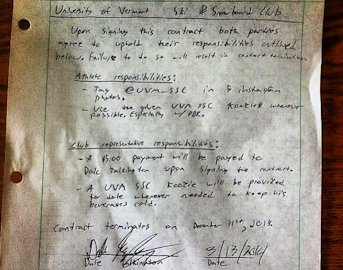 University of Vermont Ski & Snowboard Club
Upon signing this contract both parties
agree to uphold their responsibilities outlined
below, failure to do so will result in contract termination.
Athlete responsibilities:
- Tag @UVA_SSC in 5 instagram
photos.
- Use the given UVA SSC Koozie whenever
possible, especially w/ PBR.
Club representative responsibilities:
- A $5.00 payment will be payed to
Dale upon signing the contract.
- A UVA SSC Koozie will be provided
to Dale whenever needed to keep his
beverages cold.
Contract terminates on December 31st,
Dale Date